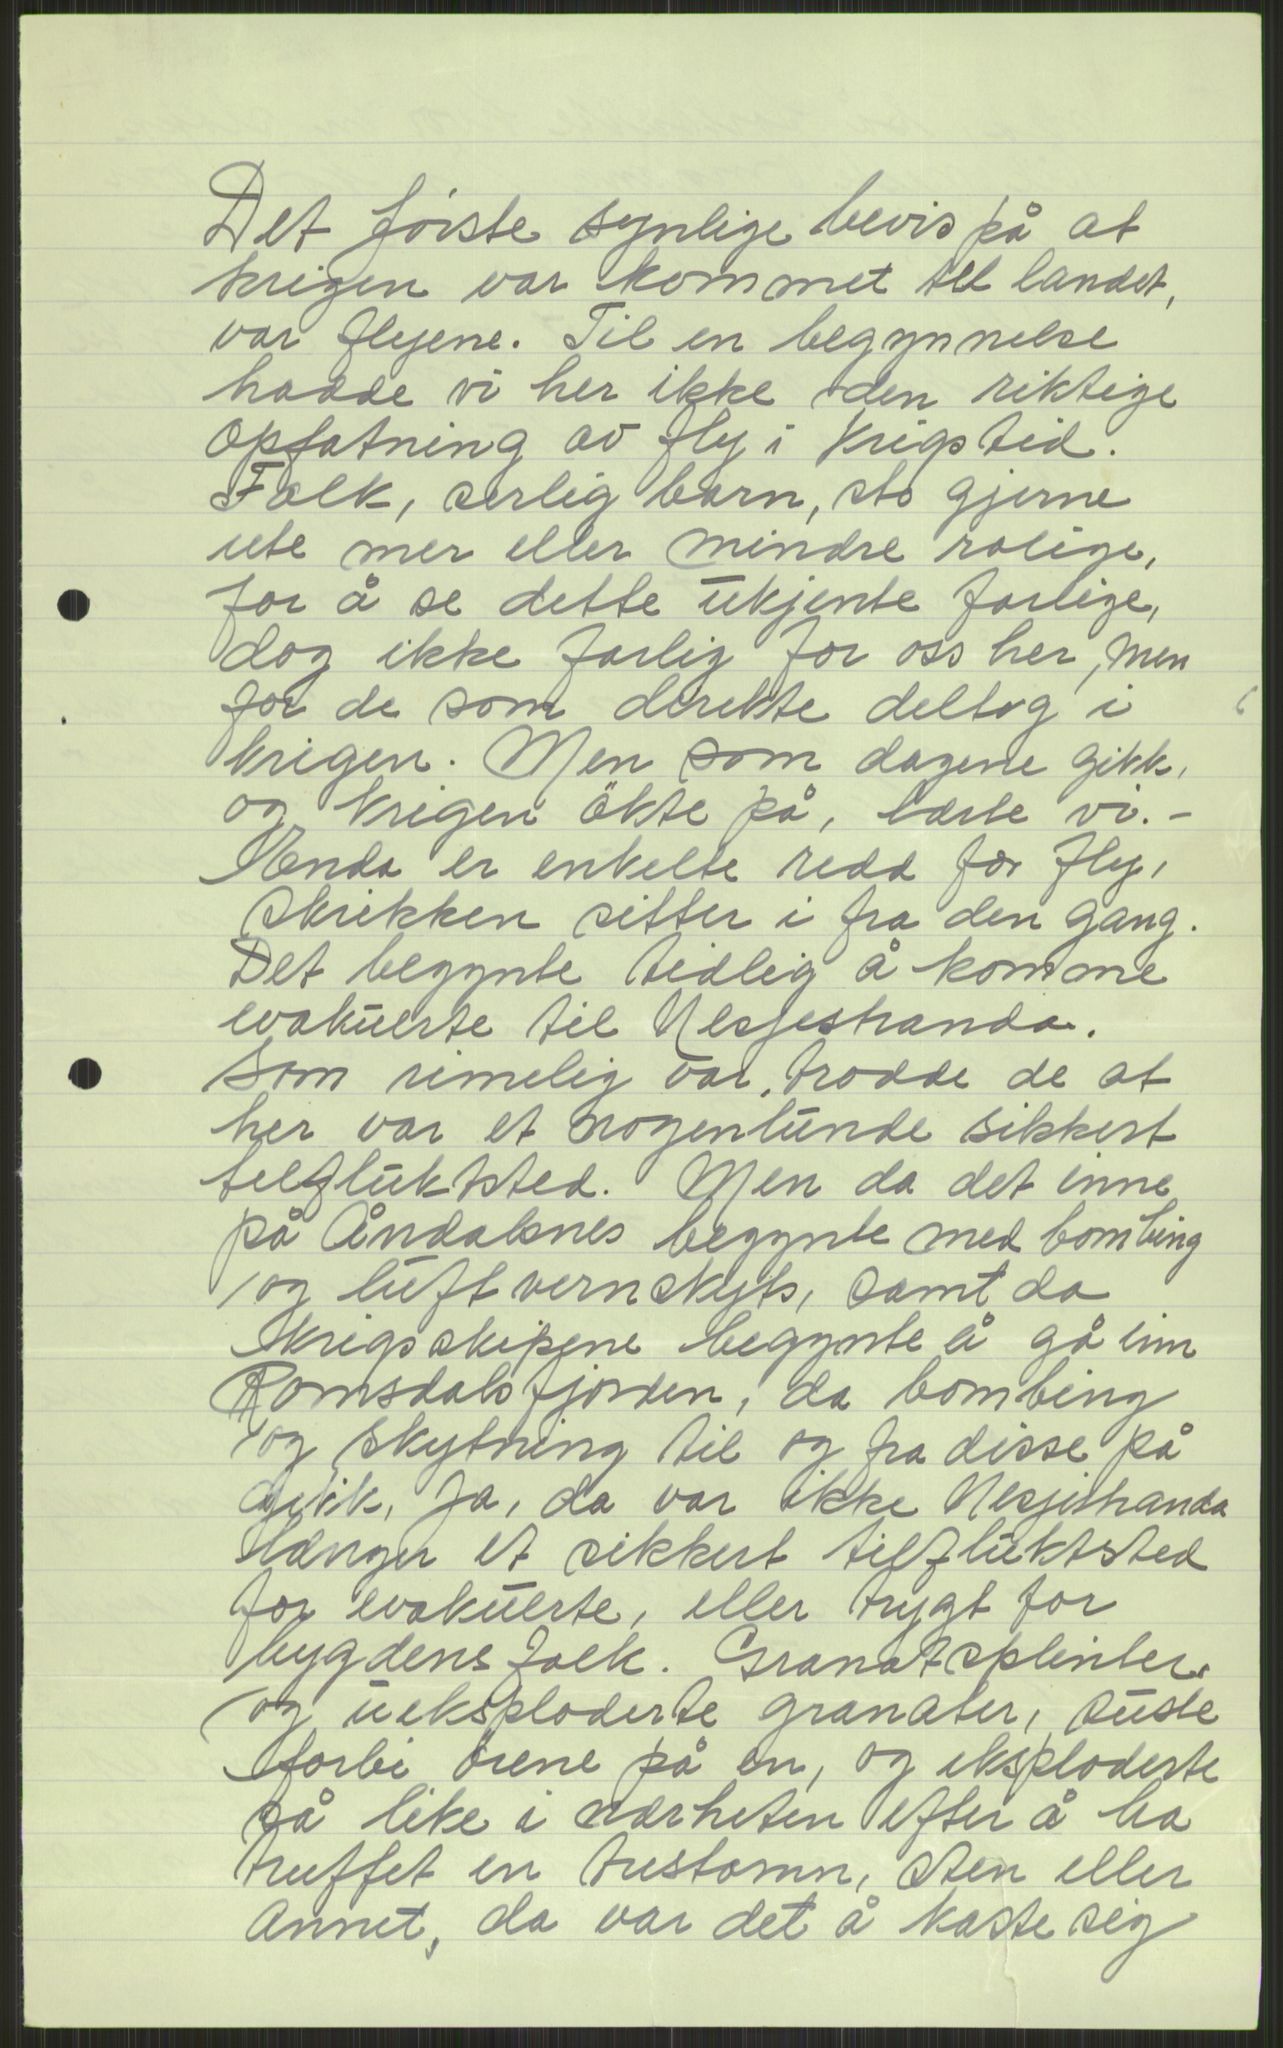 Det første synlige bevis på at
krigen var kommet til landet,
var flyene. Til en begynnelse
hadde vi her ikke den riktige
opfatning av fly i krigstid.
Folk, serlig barn, sto gjerne
ute mer eller mindre rolige,
for å se dette ukjente farlige,
dog ikke farlig for oss her, men
for de som direkte deltog i
krigen. Men som dagene gikk,
og krigen ökte på, lærte vi. -
Enda er enkelte redd for fly,
skrekken sitter i fra den gang.
Det begynte tidlig å komme
evakuerte til Nesjestranda.
Som rimelig var, trodde de at
her var et nogenlunde sikkert
tilfluktsted. Men da det inne
på Åndalsnes begynte med bombing
og luftvernskyts, samt da
krigsskipene begynte å gå inn
Romsdalsfjorden, da bombing
og skytning til og fra disse på
gikk, Ja, da var ikke Nesjestranda
længer et sikkert tilfluktsted
for evakuerte, eller trygt for
bygdens folk. Granatsplinter
og ueksploderte granater, suste
forbi örene på en, og eksploderte
så like i nærheten efter å ha
truffet en trestamn, sten eller
annet, da var det å kaste sig